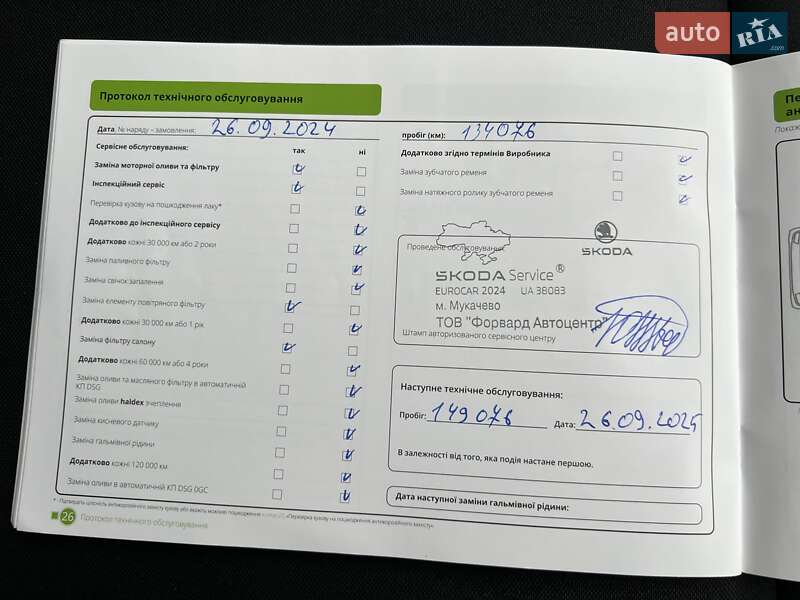 auto RIA .com
Протокол технічного обслуговування
Дата, № наряду – замовлення: 26.09.2024
пробіг (км): 134076
Сервісне обслуговування: так ні
Заміна моторної оливи та фільтру
Інспекційний сервіс
Перевірка кузову на пошкодження лаку*
Додатково до інспекційного сервісу
Додатково кожні 30 000 км або 2 роки
Заміна паливного фільтру
Заміна свічок запалення
Заміна елементу повітряного фільтру
Додатково кожні 30 000 км або 1 рік
Заміна фільтру салону
Додатково кожні 60 000 км або 4 роки
Заміна оливи та масляного фільтру в автоматичній
КП DSG
Заміна оливи haldex зчеплення
Заміна кисневого датчику
Заміна гальмівної рідини
Додатково кожні 120 000 км
Заміна оливи в автоматичній КП DSG 0GC
Додатково згідно термінів Виробника
Заміна зубчатого ременя
Заміна натяжного ролику зубчатого ременя
Проведене обслуговування
SKODA
SKODA Service®
EUROCAR 2024 UA 38083
м. Мукачево
ТОВ "Форвард Автоцентр"
Штамп авторизованого сервісного центру
Наступне технічне обслуговування:
Пробіг: 149076 Дата: 26.09.2025
В залежності від того, яка подія настане першою.
Дата наступної заміни гальмівної рідини:
26 Протокол технічного обслуговування